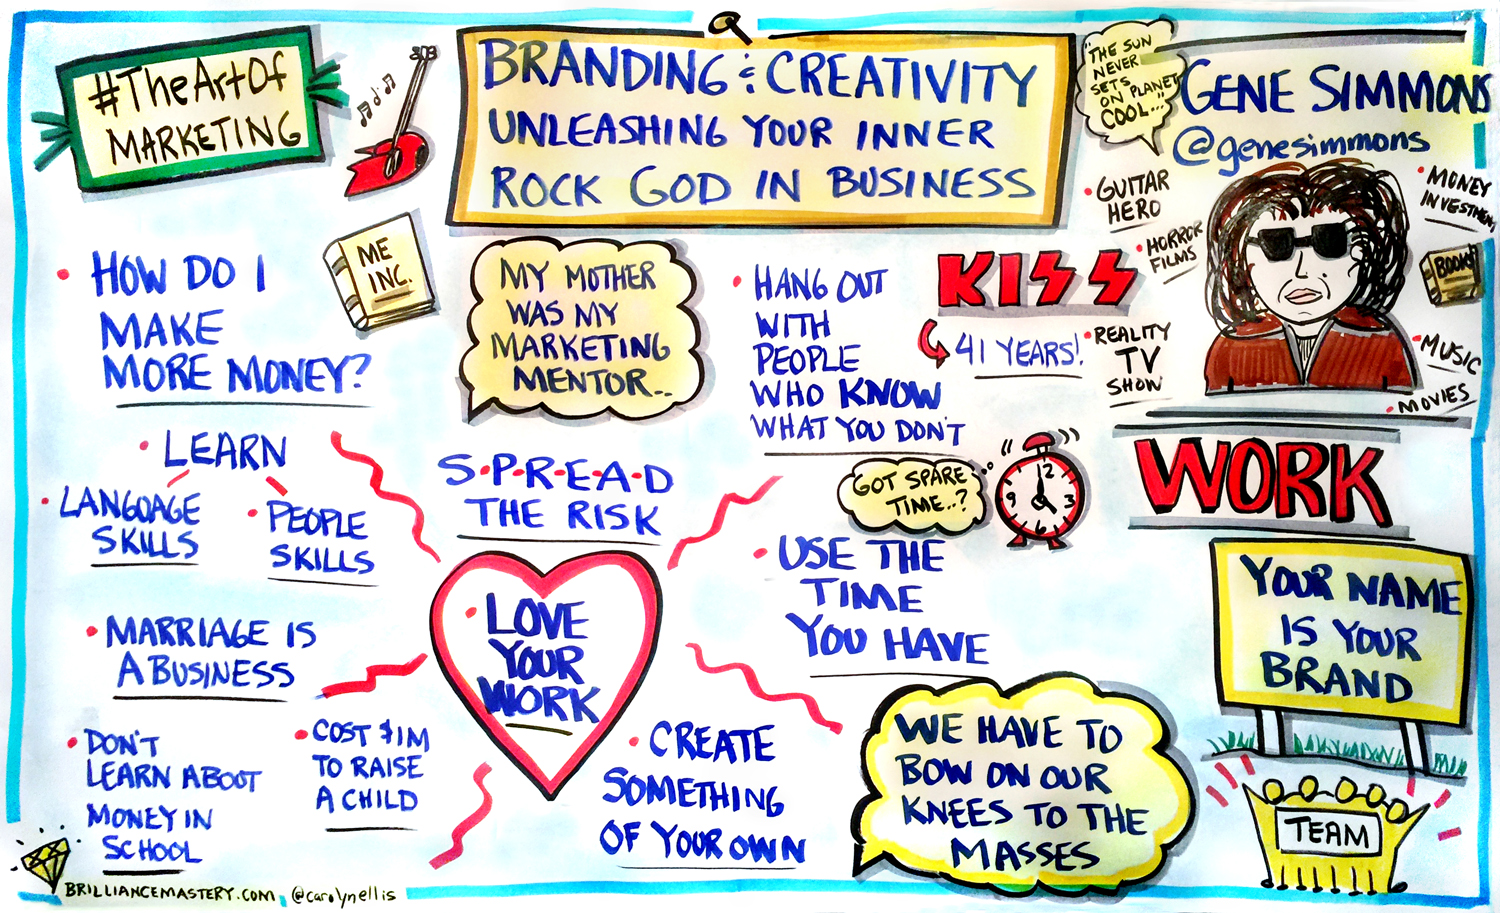 #TheArtOf
MARKETING
BRANDING & CREATIVITY
UNLEASHING YOUR INNER
ROCK GOD IN BUSINESS
"THE SUN
NEVER
SETS
ON PLANET
COOL..."
GENE SIMMONS
@genesimmons
• GUITAR
HERO
• HORROR
FILMS
• MONEY
INVESTMENT
BOOKS
• MUSIC
• MOVIES
• REALITY
TV
SHOW
KISS
41 YEARS!
• HOW DO I
MAKE
MORE MONEY?
ME
INC.
MY MOTHER
WAS MY
MARKETING
MENTOR...
• HANG OUT
WITH
PEOPLE
WHO KNOW
WHAT YOU DON'T
• LEARN
• LANGUAGE
SKILLS
• PEOPLE
SKILLS
S•P•R•E•A•D
THE RISK
GOT SPARE
TIME..?
12
3
6
9
• USE THE
TIME
YOU HAVE
WORK
YOUR NAME
IS YOUR
BRAND
• MARRIAGE IS
A BUSINESS
• LOVE
YOUR
WORK
• DON'T
LEARN ABOUT
MONEY IN
SCHOOL
• COST $1M
TO RAISE
A CHILD
• CREATE
SOMETHING
OF YOUR OWN
WE HAVE TO
BOW ON OUR
KNEES TO THE
MASSES
TEAM
BRILLIANCEMASTERY.COM, @carolynellis